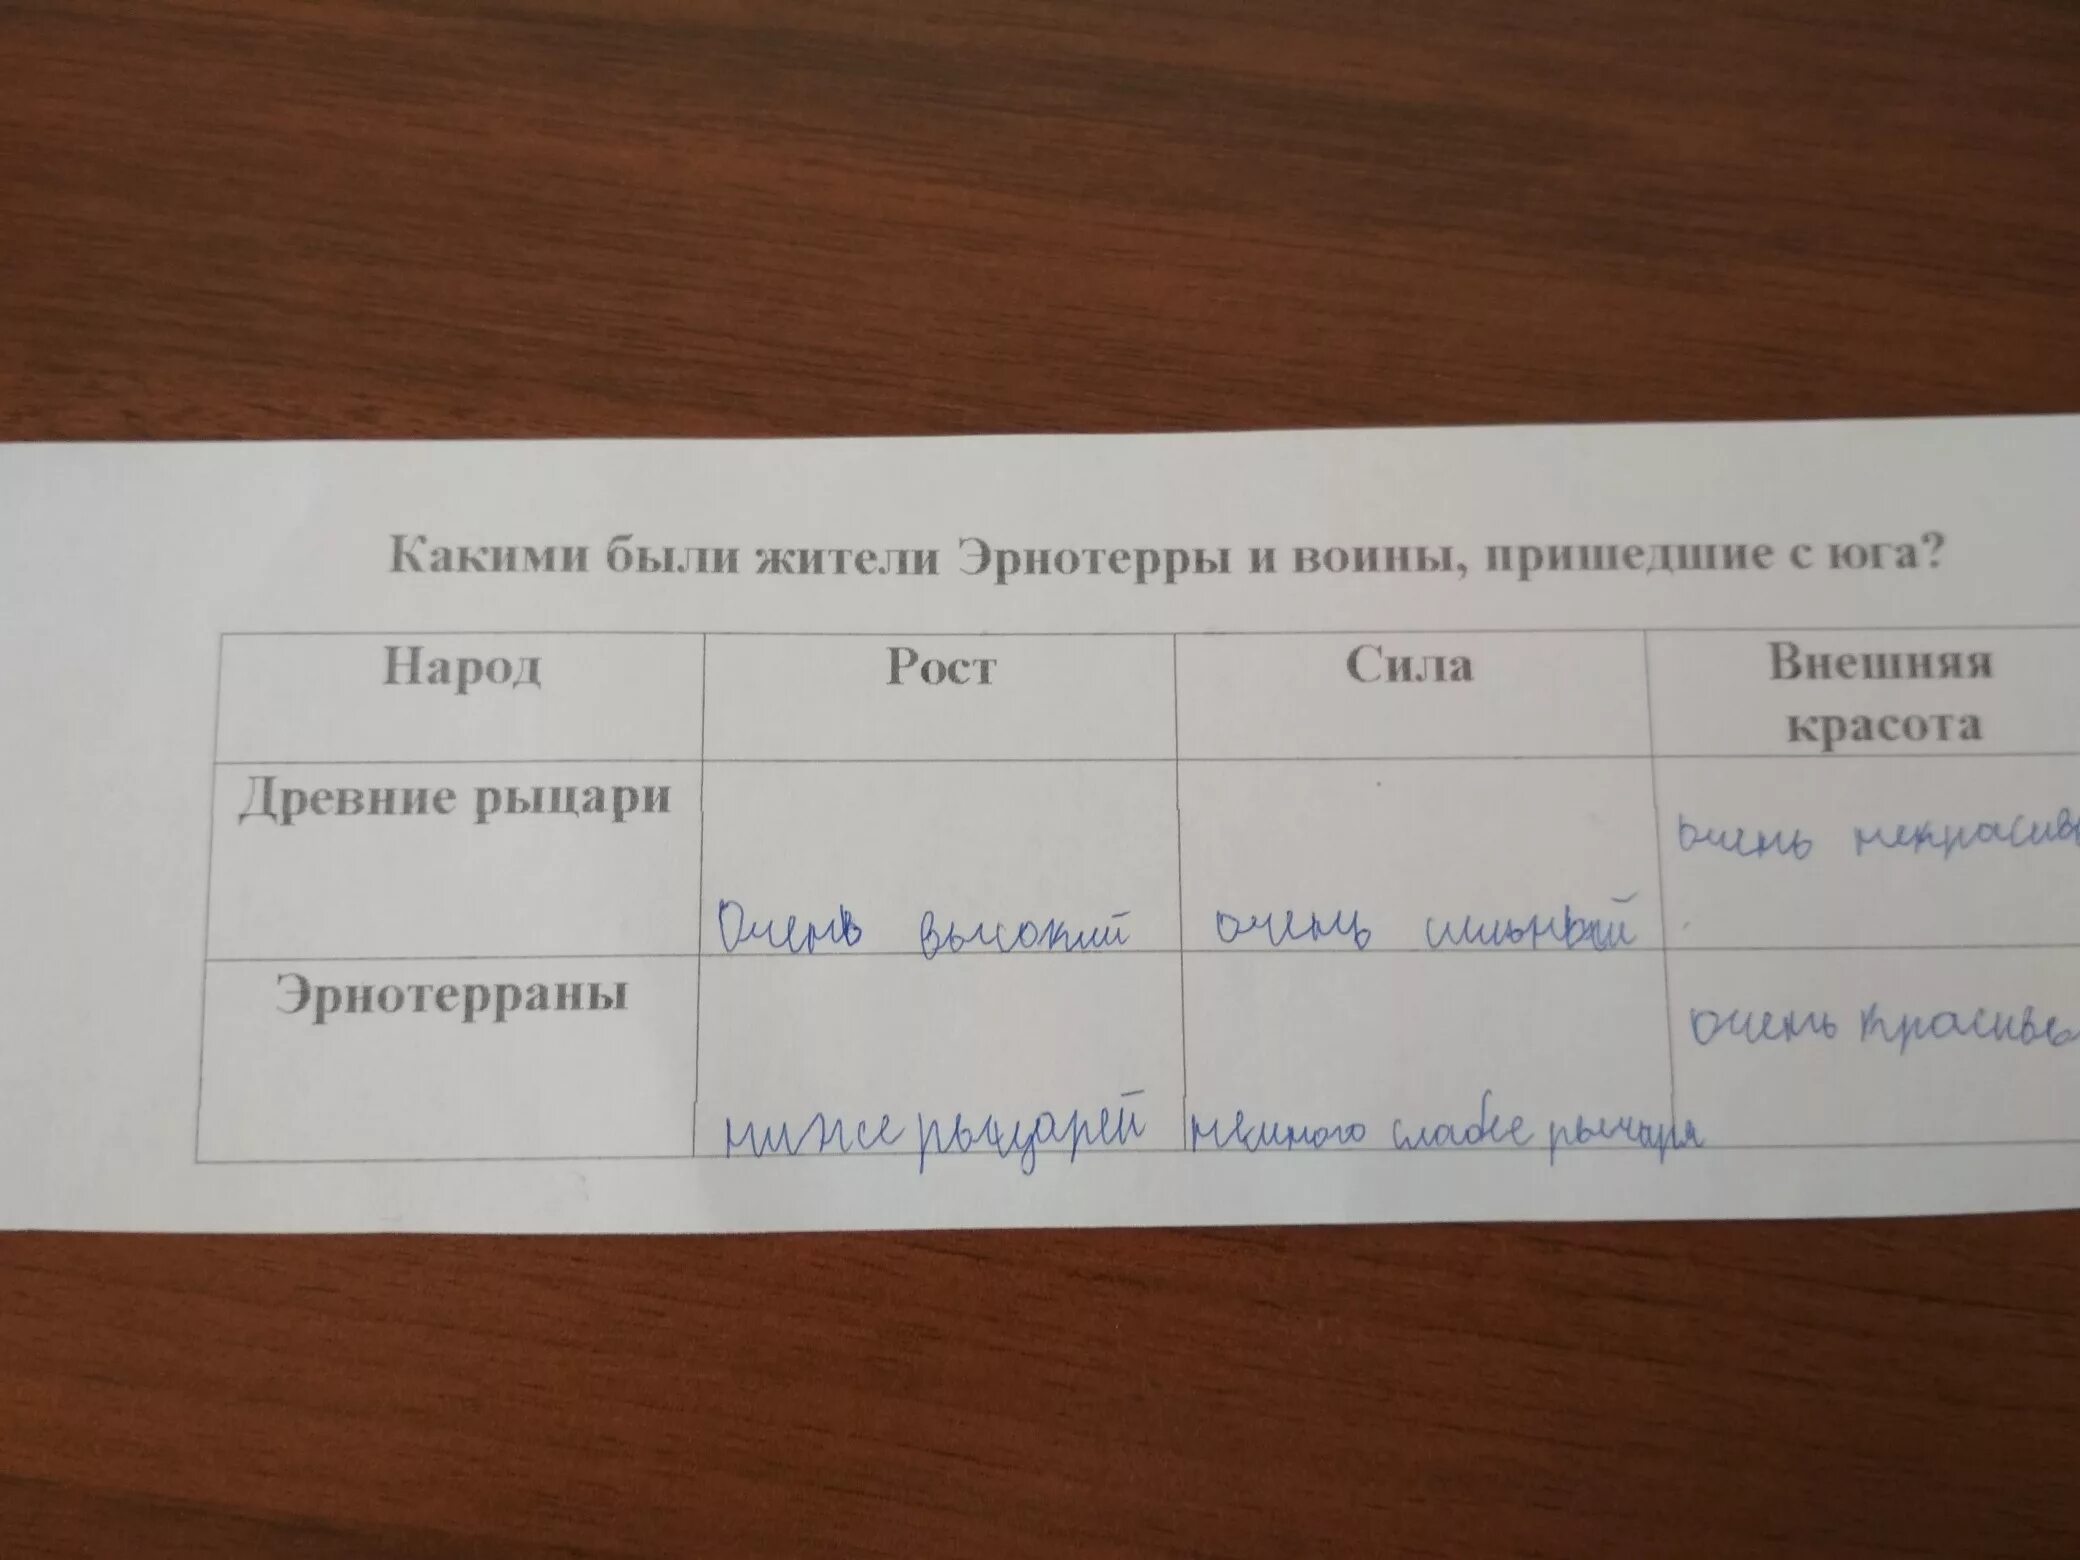 Какими были жители Эрнотерры и воины, пришедшие с юга?
Народ Рост Сила Внешняя
красота
Древние рыцари
очень некрасивы
Очень высокий очень сильный
Эрнотерраны
очень красивы
ниже рыцарей немного слабее рыцаря